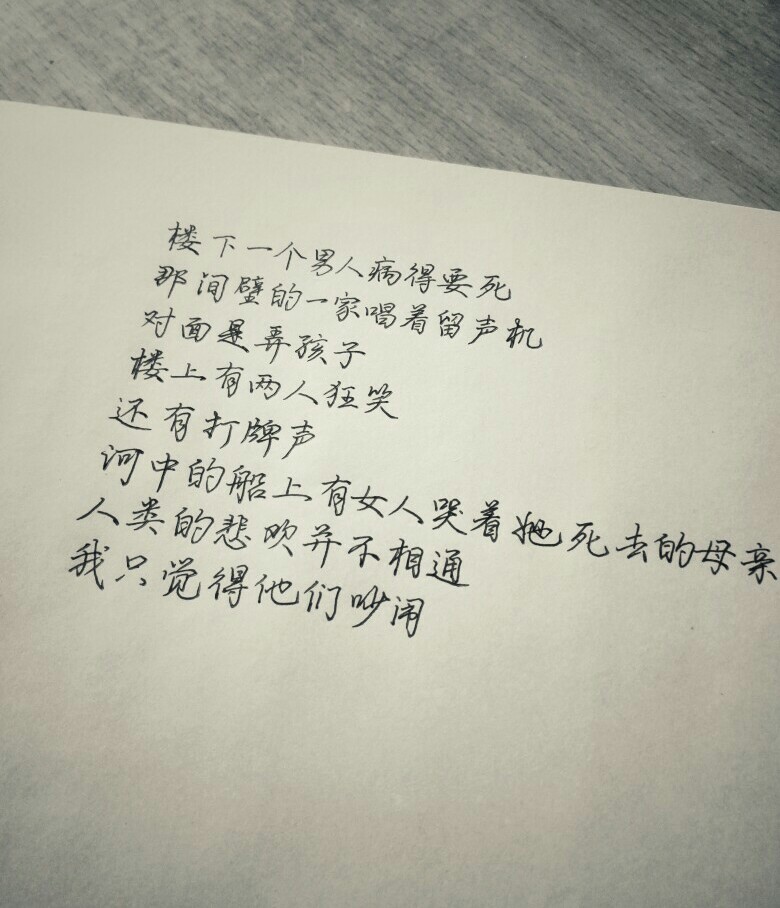 楼下一个男人病得要死
那间壁的一家唱着留声机
对面是弄孩子
楼上有两人狂笑
还有打牌声
河中的船上有女人哭着她死去的母亲
人类的悲吹并不相通
我只觉得他们吵闹